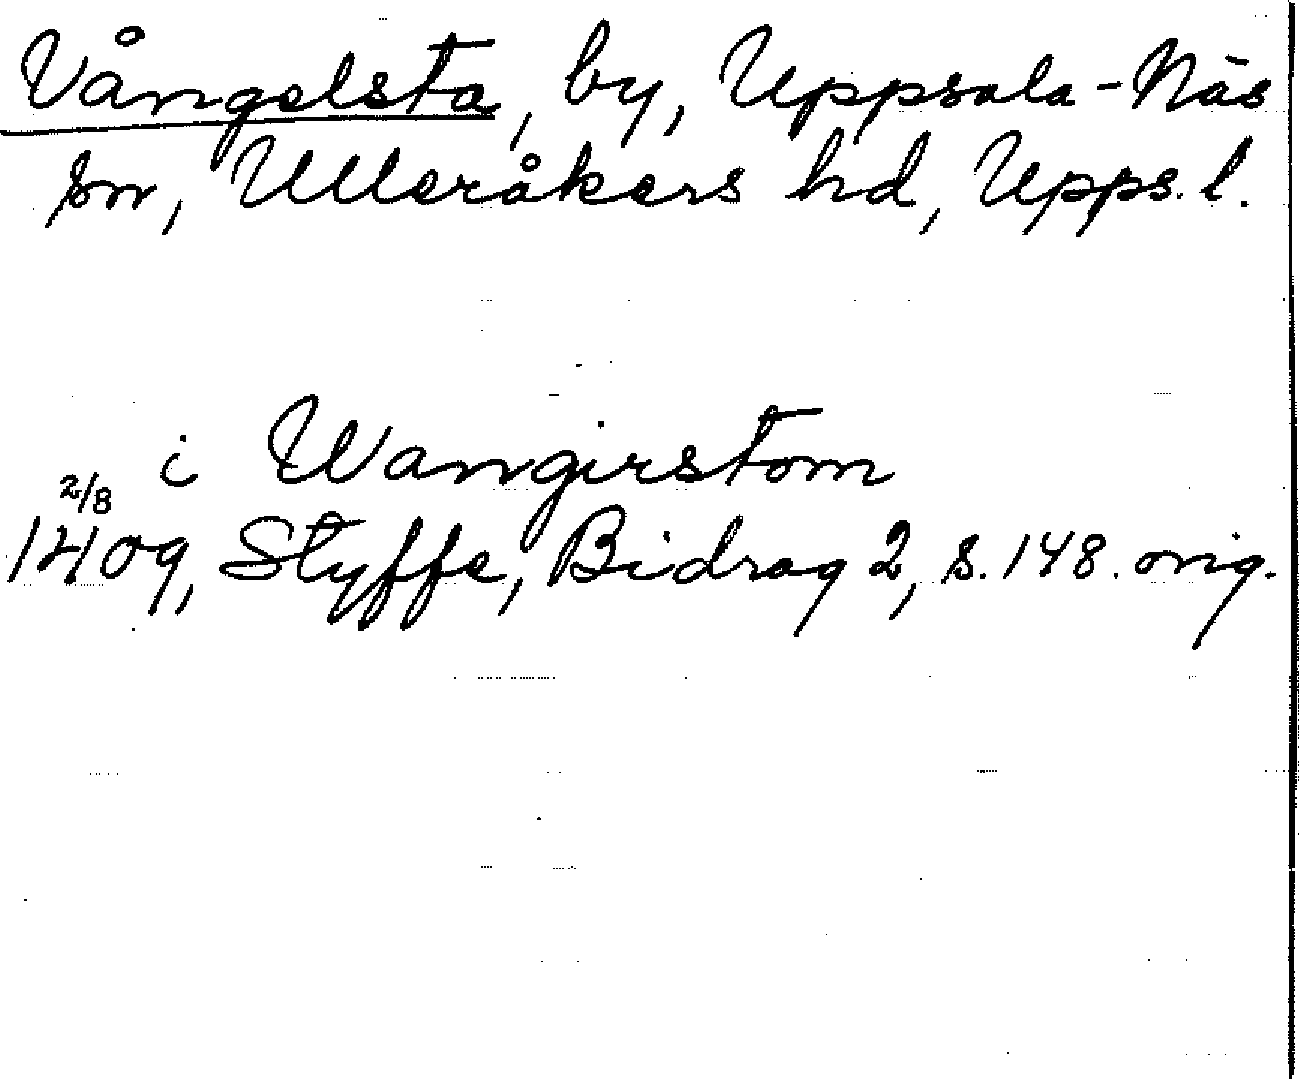 Vångelsta, by, Uppsala-Näs
sn, Ulleråkers hd, Upps. l.
i Wangirstom
2/8
1409, Styffe, Bidrag 2, s. 148. orig.